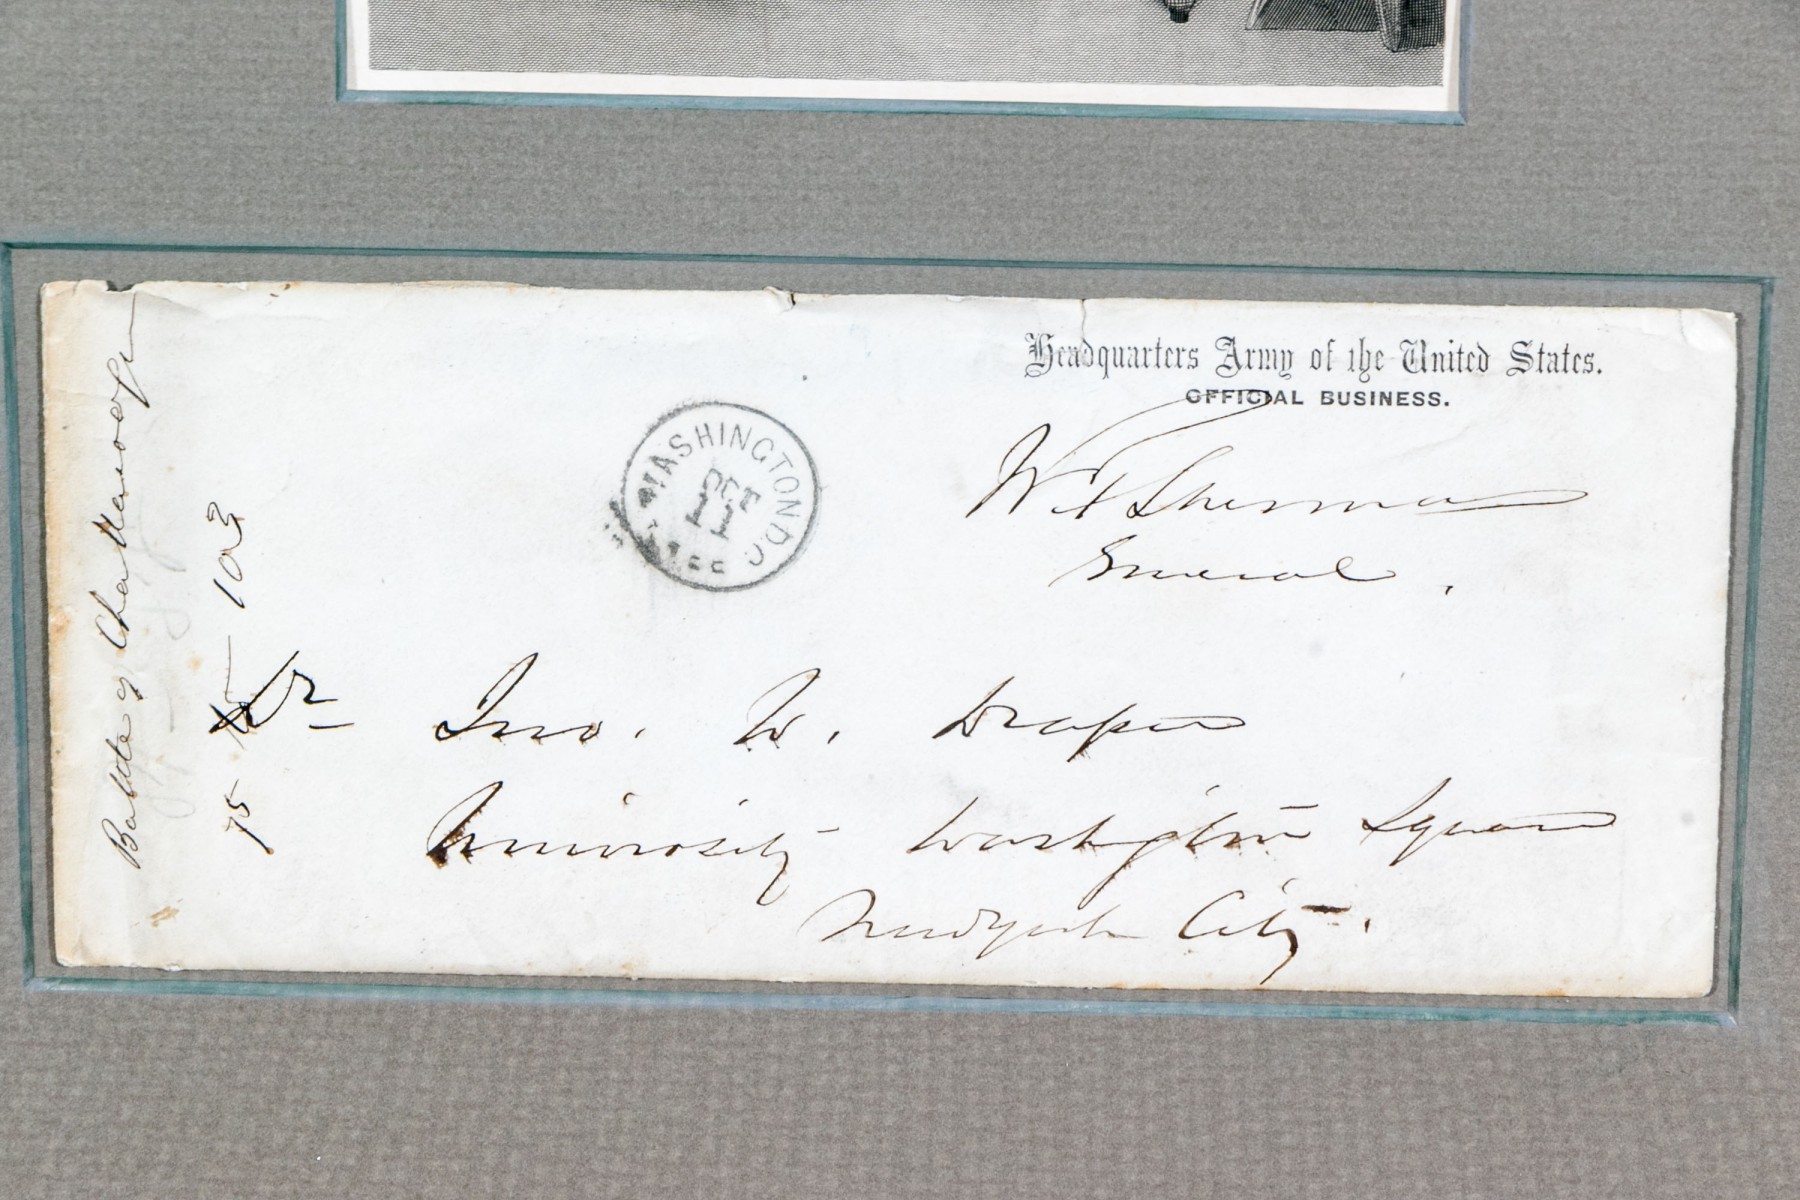 Headquarters Army of the United States.
OFFICIAL BUSINESS.
W T Sherman
General.
WASHINGTON D.C.
OCT
Dr Jno. W. Draper
University Washington Square
New York City.
Battle of Chattanooga
103
75